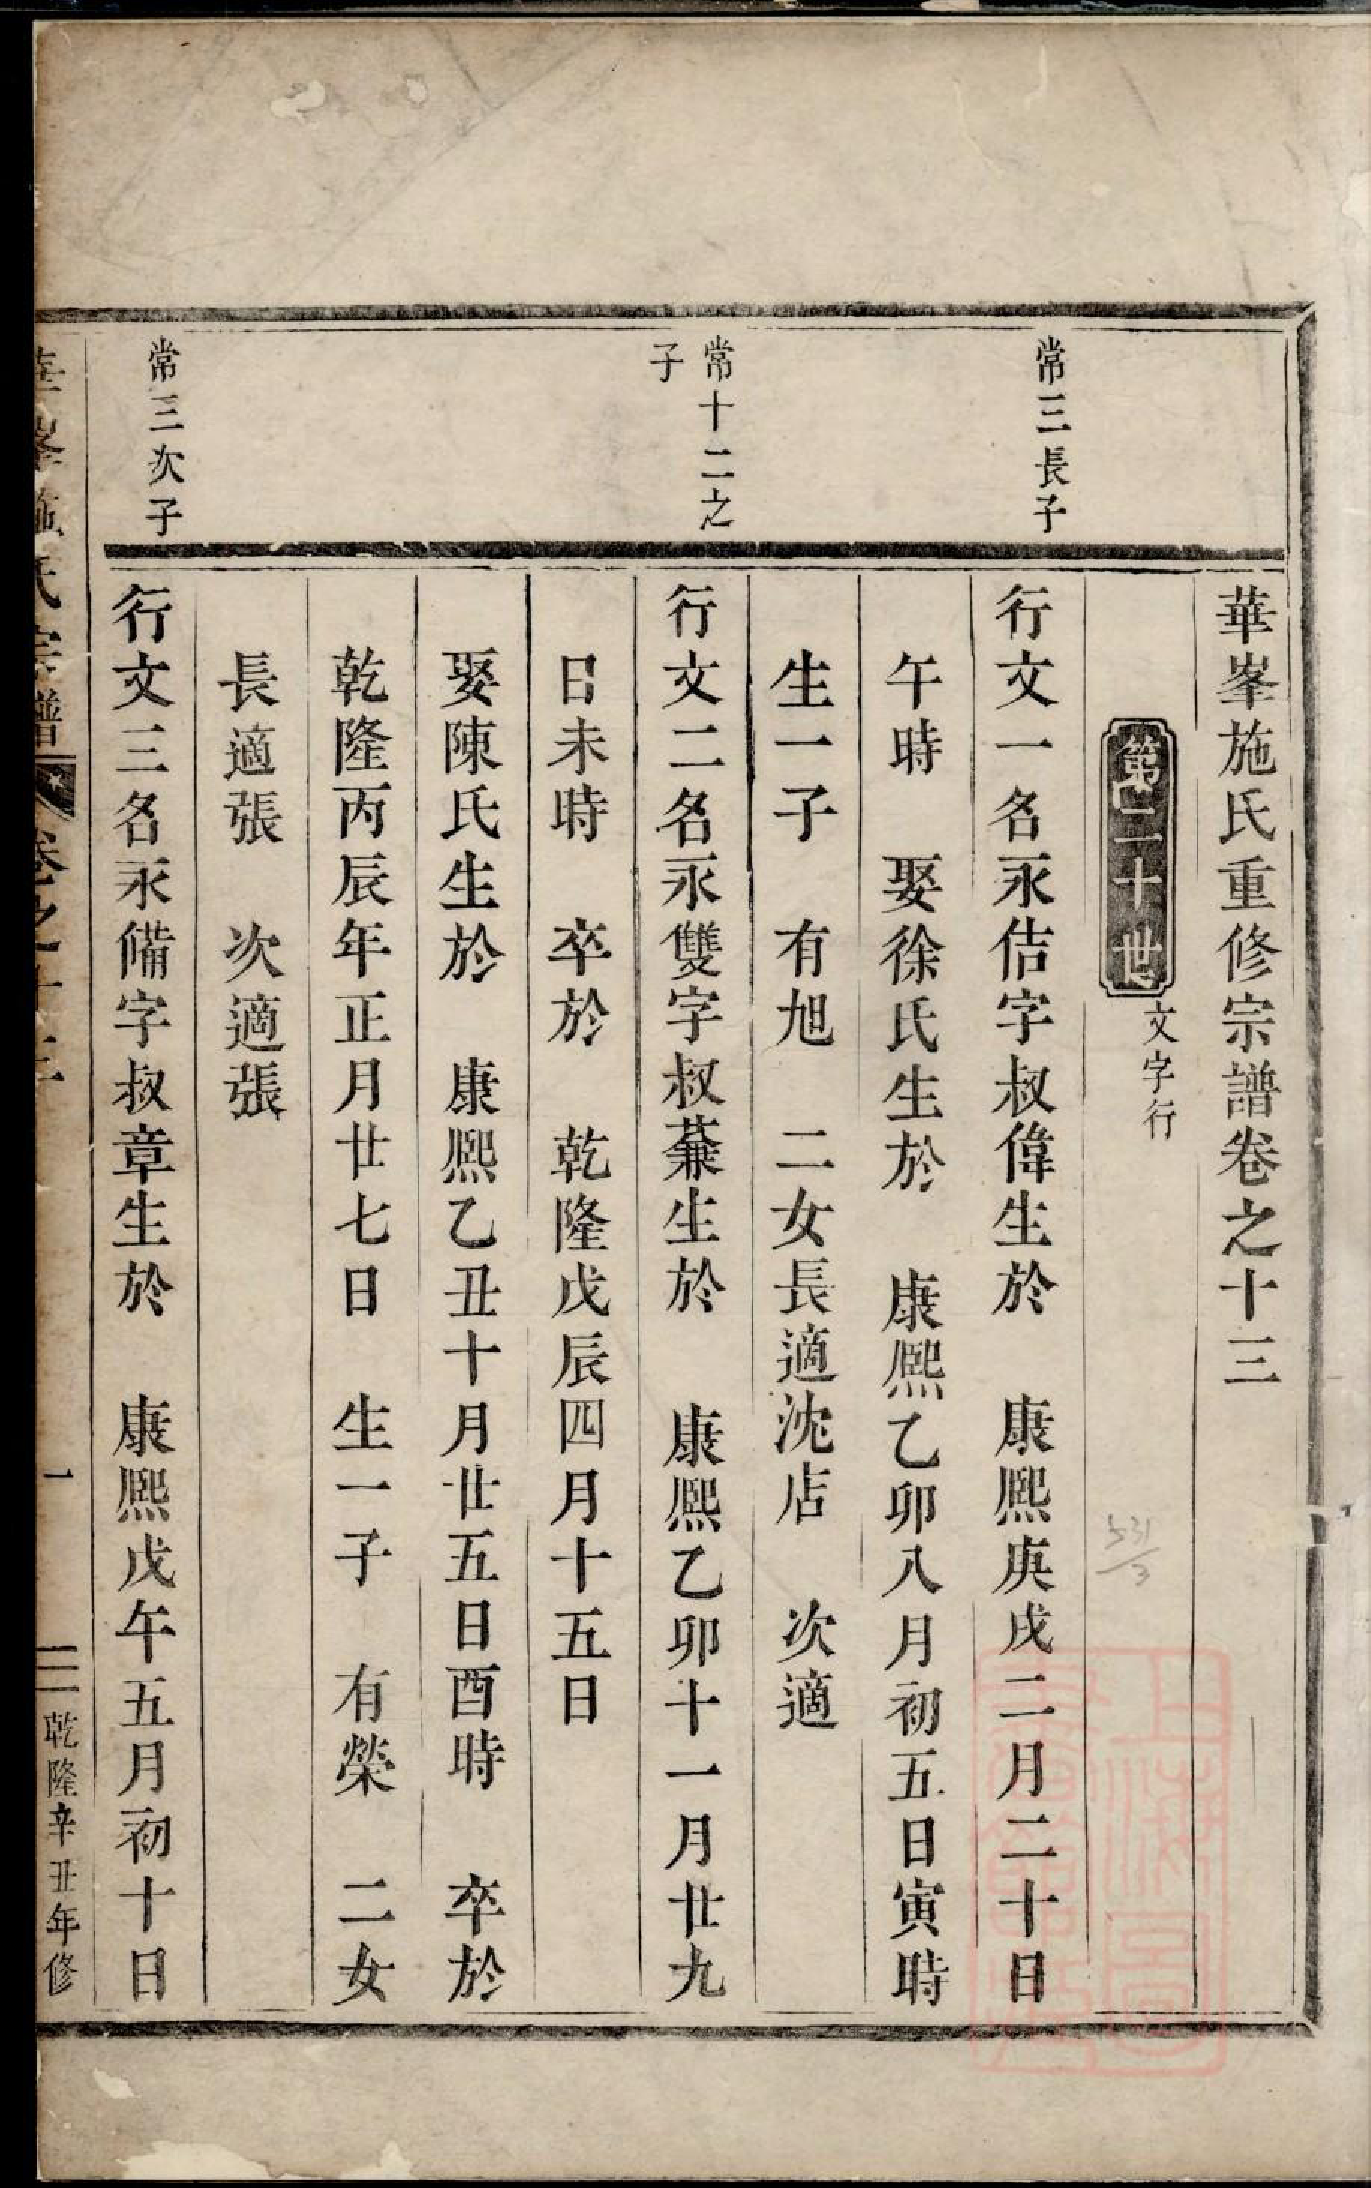 華峯施氏重修宗譜卷之十三
第二十世
文字行
常三長子
行文一名永佶字叔偉生於　康熙庚戌二月二十日
午時　娶徐氏生於　康熙乙卯八月初五日寅時
生一子　有旭　二女長適沈店　次適
常十二之
子
行文二名永雙字叔蒹生於　康熙乙卯十一月廿九
日未時　卒於　乾隆戊辰四月十五日
娶陳氏生於　康熙乙丑十月廿五日酉時　卒於
乾隆丙辰年正月廿七日　生一子　有榮　二女
長適張　次適張
常三次子
行文三名永備字叔章生於　康熙戊午五月初十日
華峯施氏宗譜　卷之十三　一　乾隆辛丑年修
上海圖
書館藏